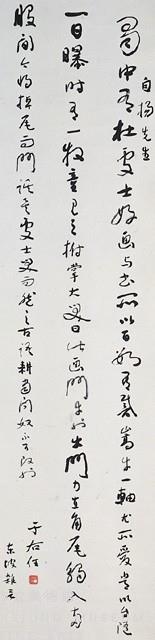 自楊先生
蜀中有杜處士好画与書所以百數有戴嵩牛一軸尤所愛常以自隨
一日曝时有一牧童見之拊掌大笑曰此画鬥牛也牛鬥力在角尾搐入两
股間今乃掉尾而鬥謬矣處士笑而然之古語耕當問奴不可改也
于右任
東坡雜